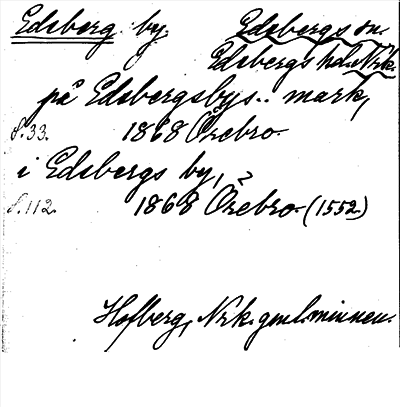 Edsberg by. Edsbergs sn.
Edsbergs hd. Nrk.
på Edsbergsbys.. mark,
s. 33. 1868 Örebro.
i Edsbergs by, 2
s. 112. 1868 Örebro. (1552)
Hofberg, Nrk. gml. minnen.